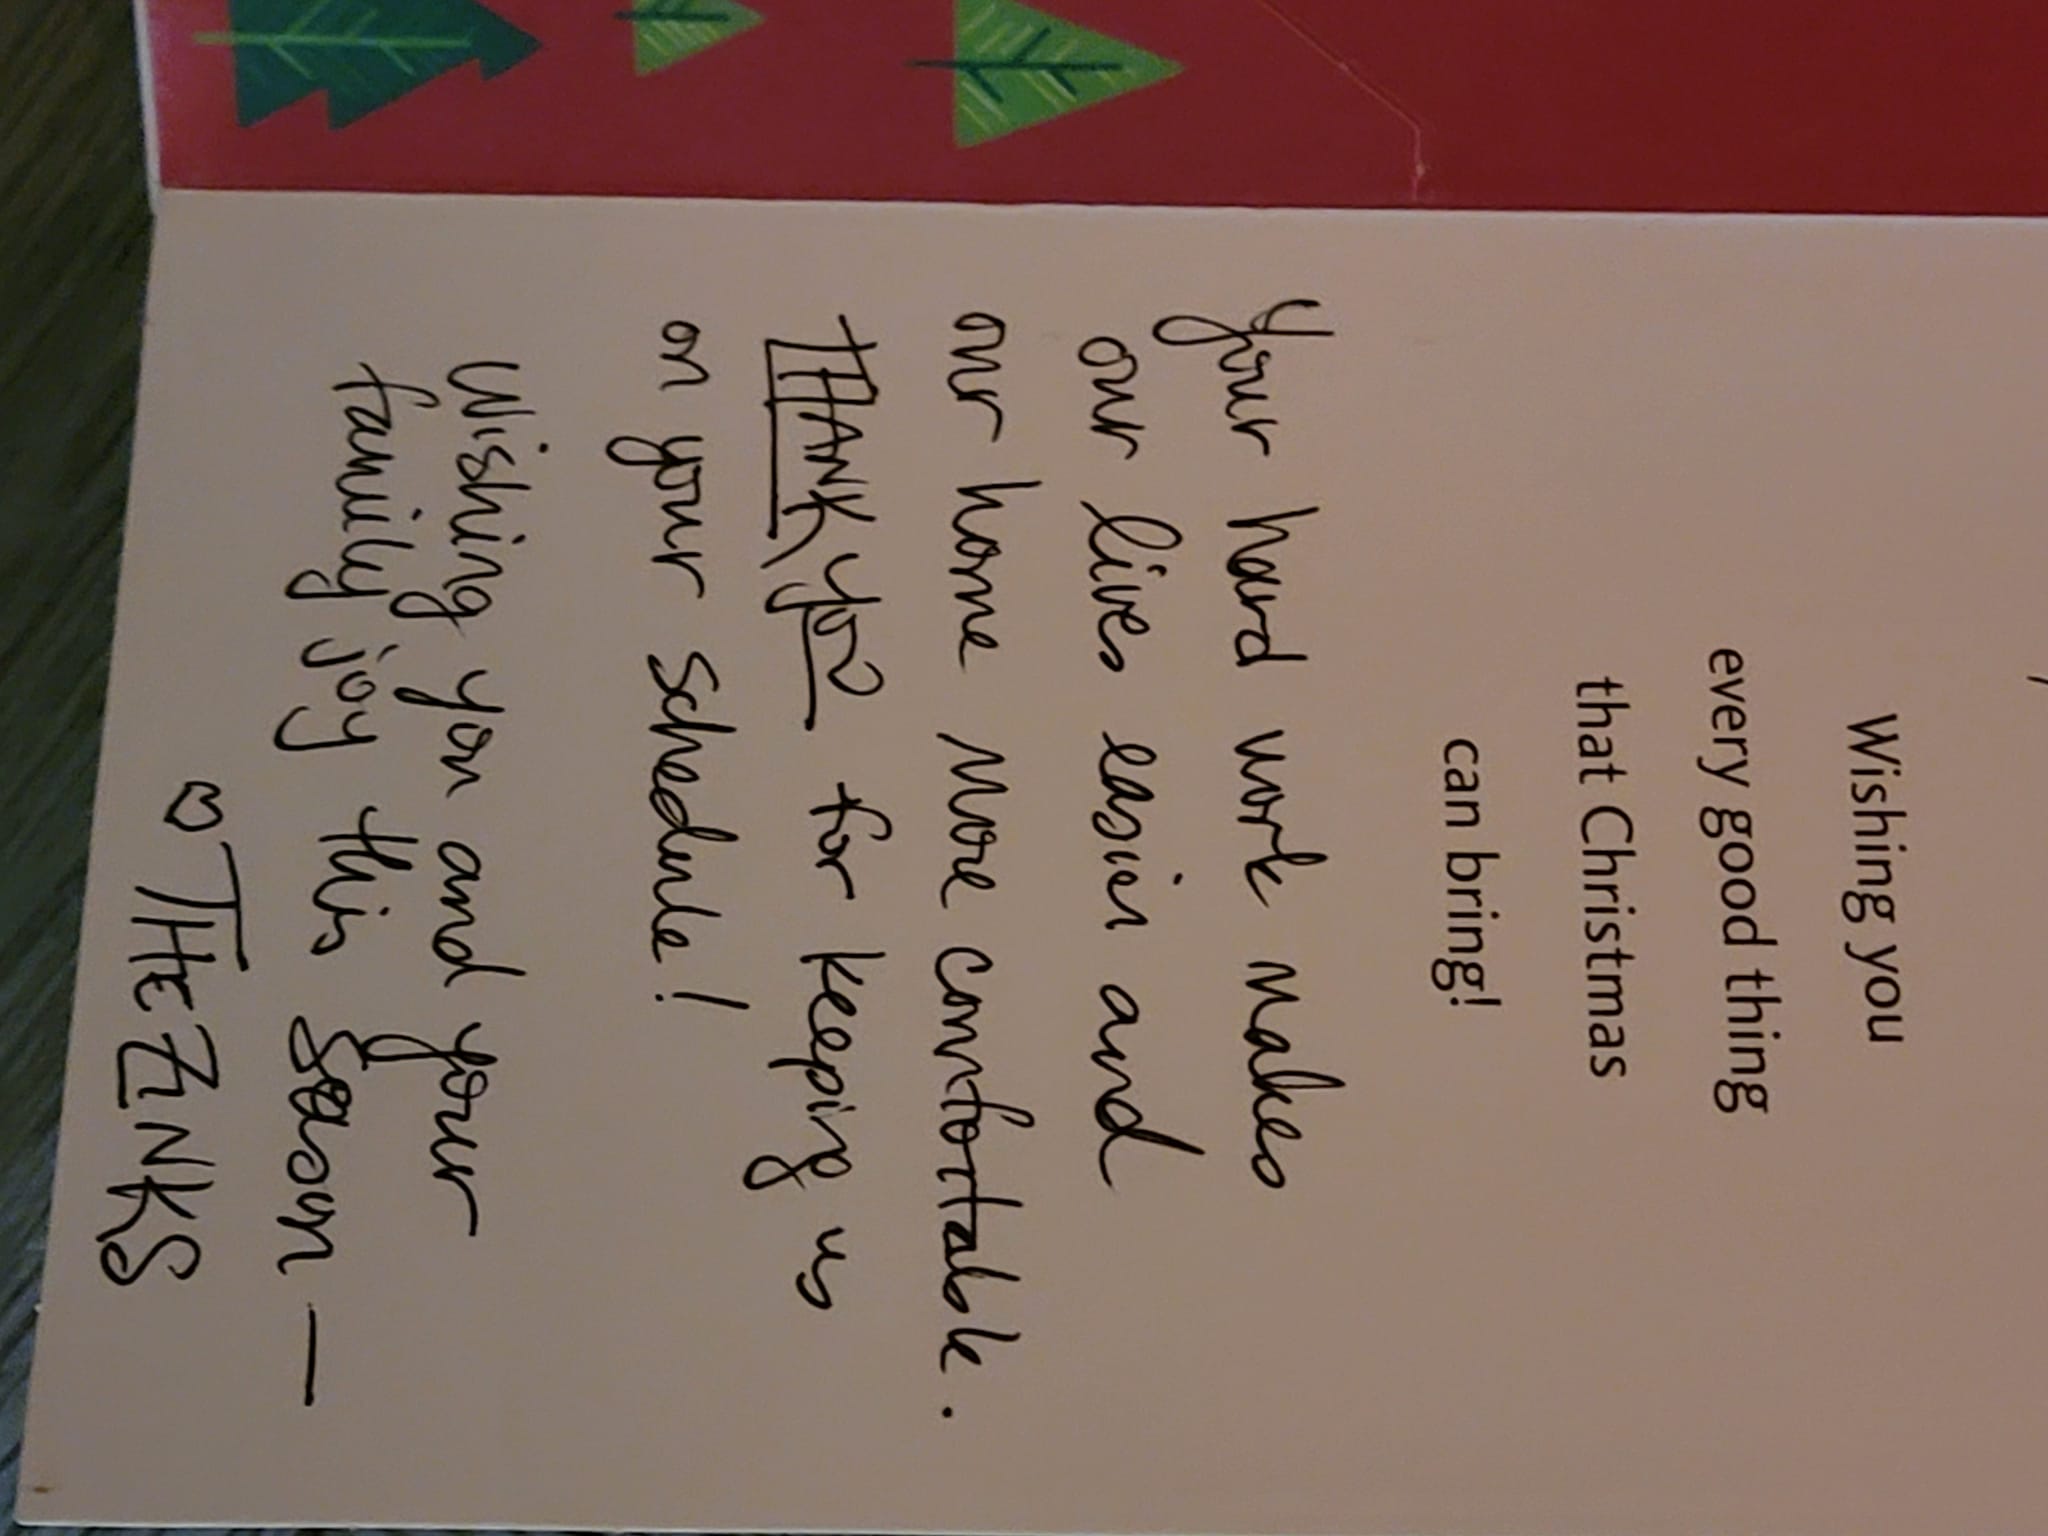 Wishing you
every good thing
that Christmas
can bring!
Your hard work makes
our lives easier and
our home more comfortable.
THANK YOU for keeping us
on your schedule!
Wishing you and your
family joy this season —
♡ THE ZINKS